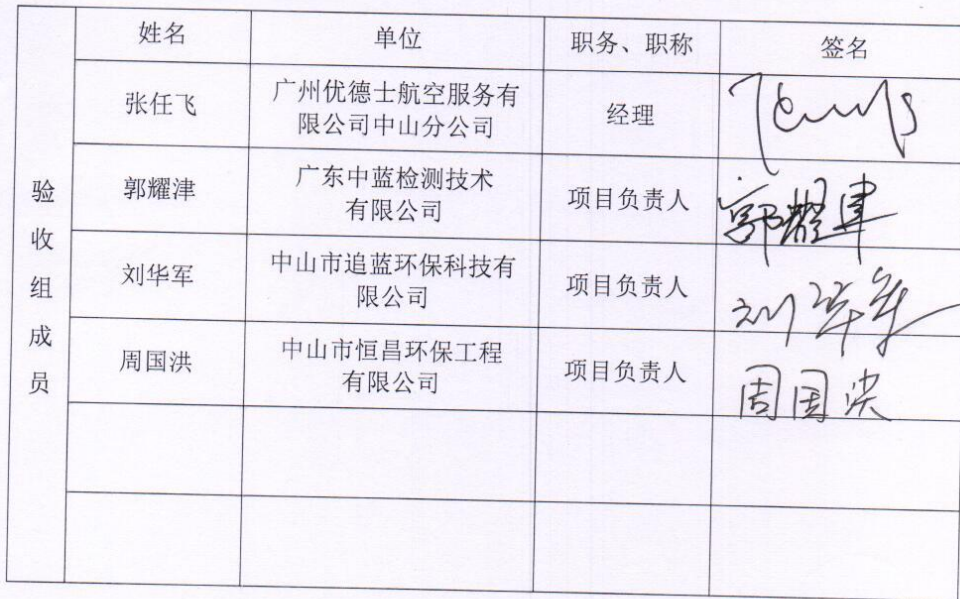 姓名
单位
职务、职称
签名
验收组成员
张任飞
广州优德士航空服务有
限公司中山分公司
经理
郭耀津
广东中蓝检测技术
有限公司
项目负责人
郭耀津
刘华军
中山市追蓝环保科技有
限公司
项目负责人
刘华军
周国洪
中山市恒昌环保工程
有限公司
项目负责人
周国洪